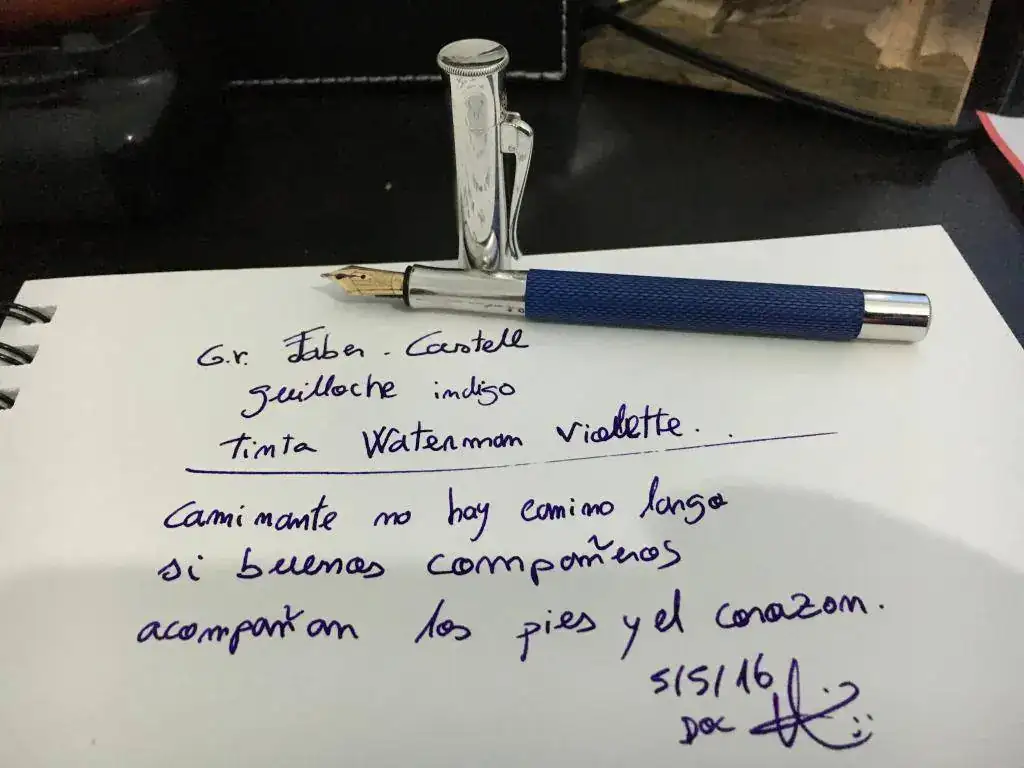 G.r. Faber-Castell
guilloche indigo
Tinta Waterman Violette..
Caminante no hay camino largo
si buenos compañeros
acompañan los pies y el corazon.
5/5/16
Doc